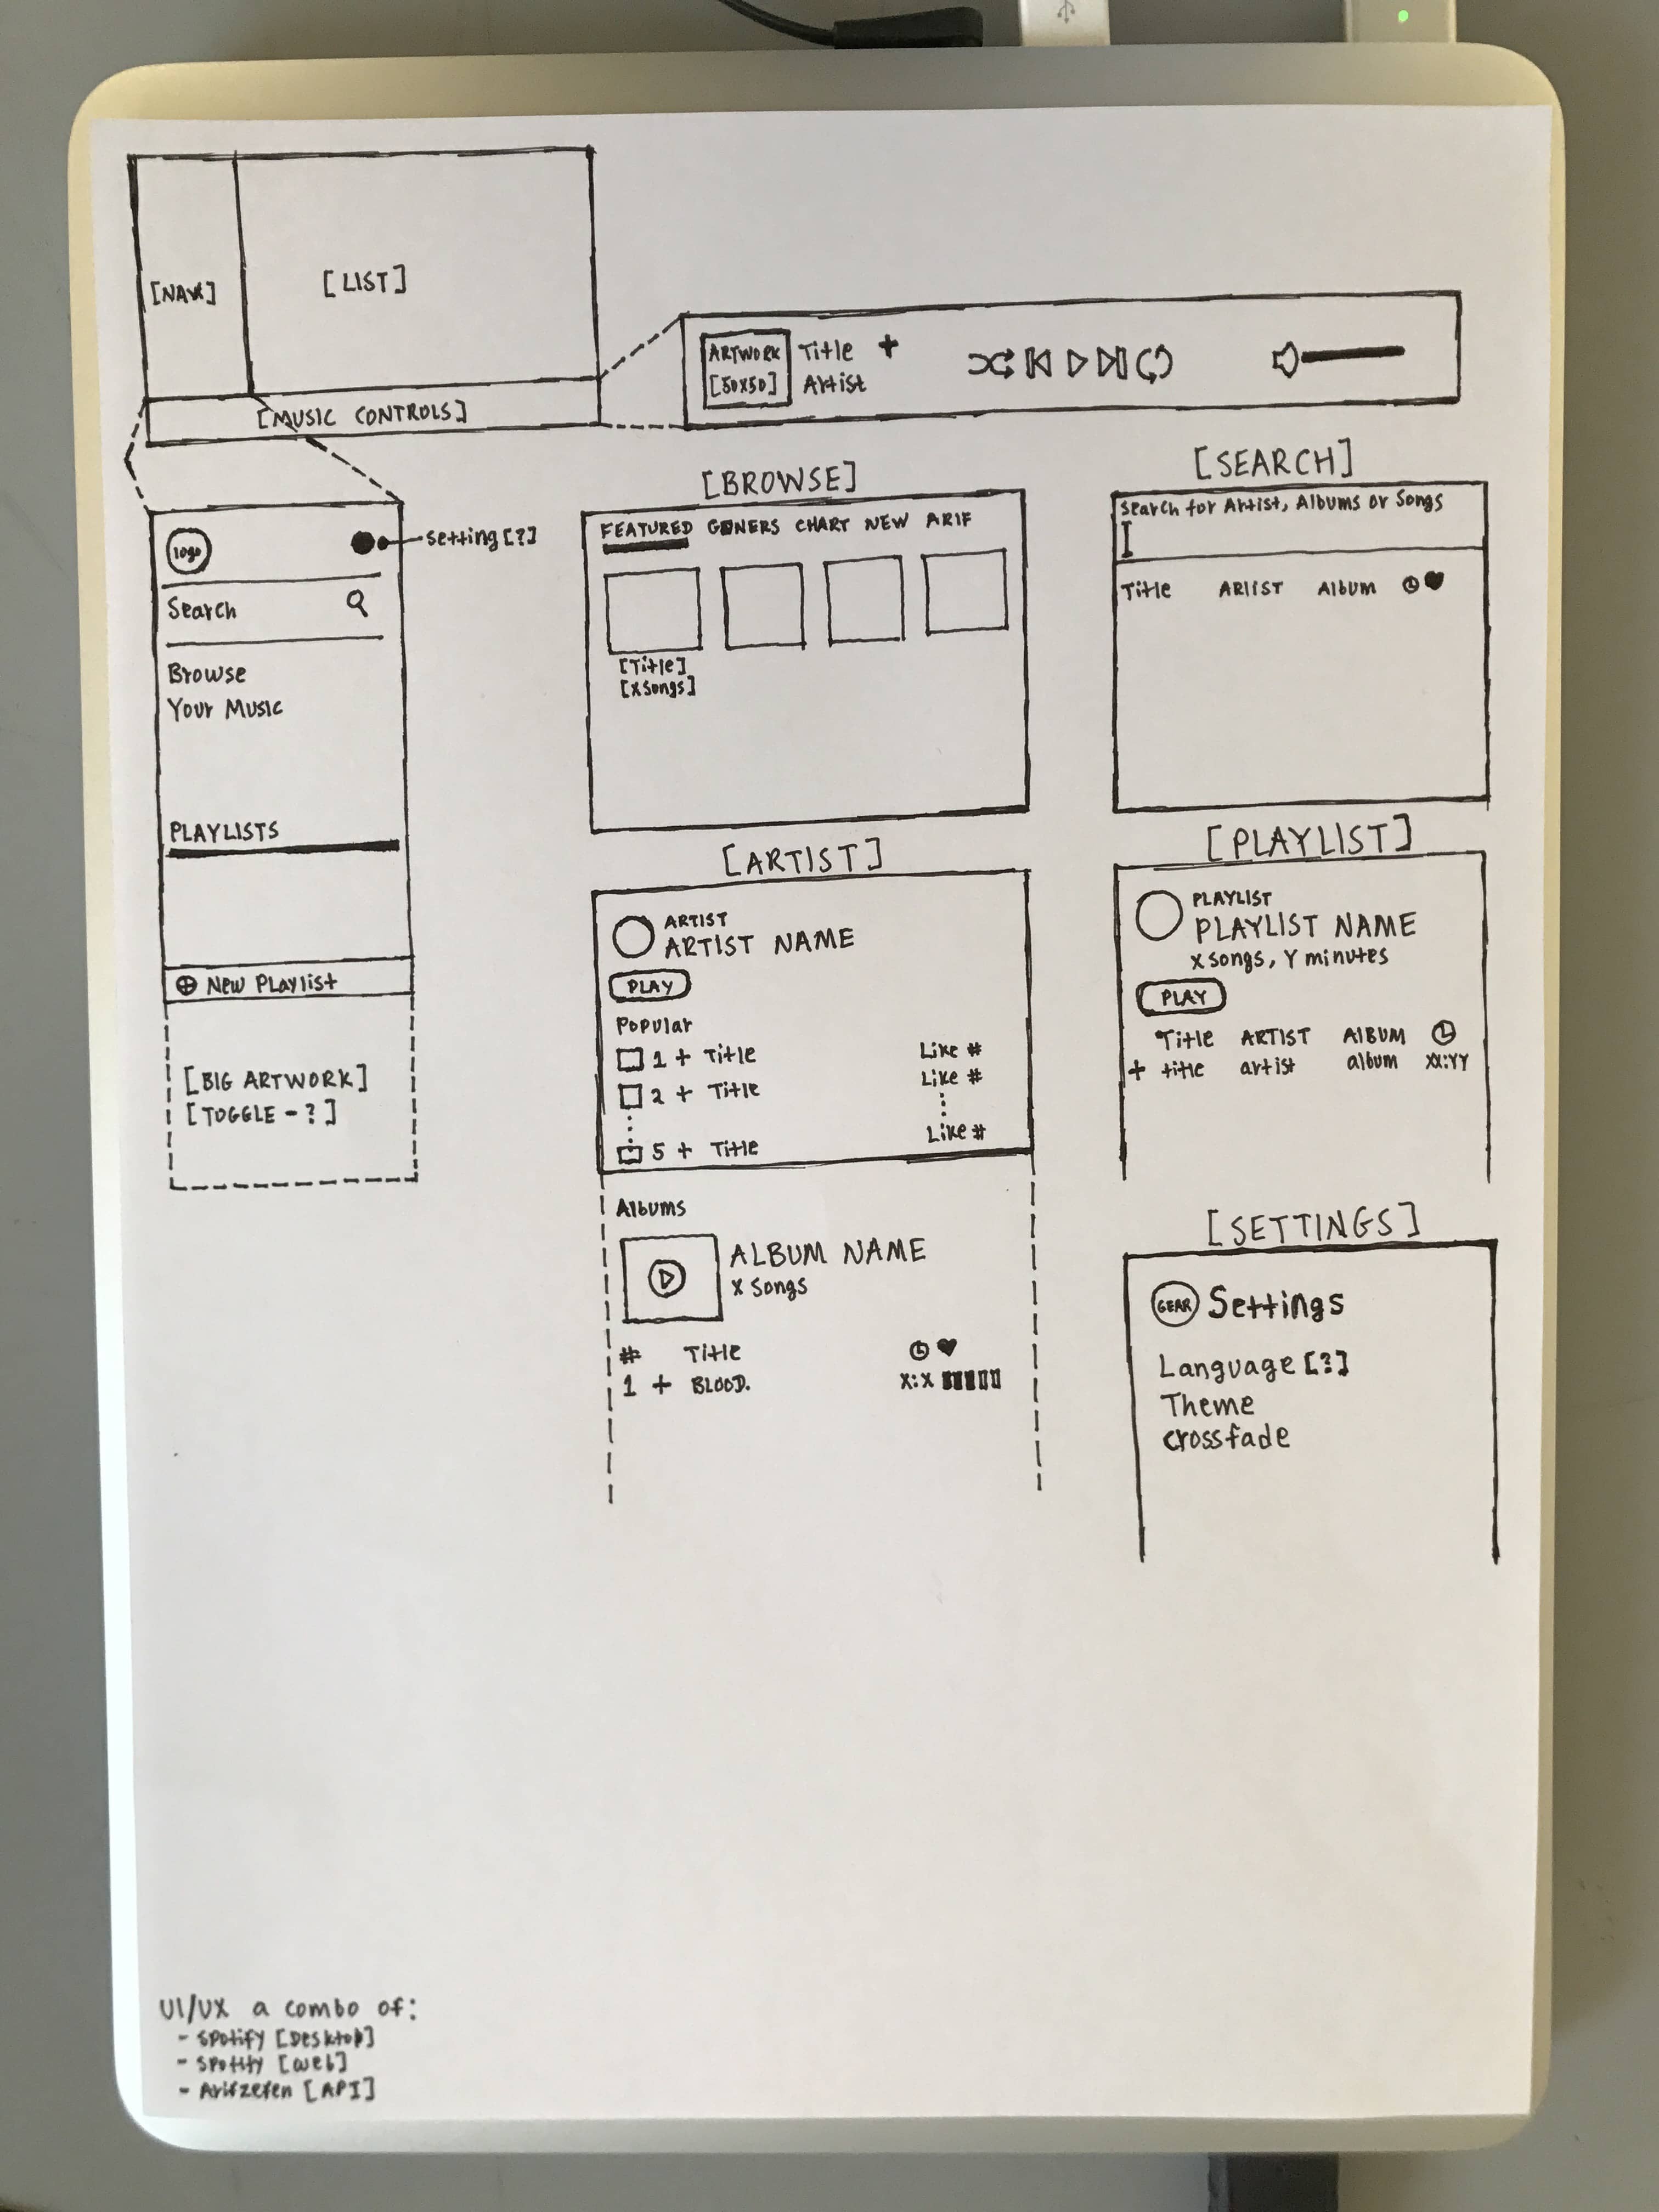 [NAV]
[LIST]
[MUSIC CONTROLS]
ARTWORK
[50X50]
Title +
Artist
logo
setting [?]
Search
Browse
Your Music
PLAYLISTS
⊕ New Playlist
[BIG ARTWORK]
[TOGGLE - ?]
[BROWSE]
FEATURED GENERS CHART NEW ARIF
[Title]
[X Songs]
[SEARCH]
Search for Artist, Albums or Songs
Title ARTIST Album
[ARTIST]
ARTIST
ARTIST NAME
PLAY
Popular
1 + Title Like #
2 + Title Like #
5 + Title Like #
Albums
ALBUM NAME
X Songs
# Title
1 + BLOOD. X:X
[PLAYLIST]
PLAYLIST
PLAYLIST NAME
X songs, Y minutes
PLAY
Title ARTIST AlBUM
+ title artist album XX:YY
[SETTINGS]
GEAR Settings
Language [?]
Theme
crossfade
UI/UX a combo of:
- Spotify [Desktop]
- Spotify [web]
- Arifzefen [API]